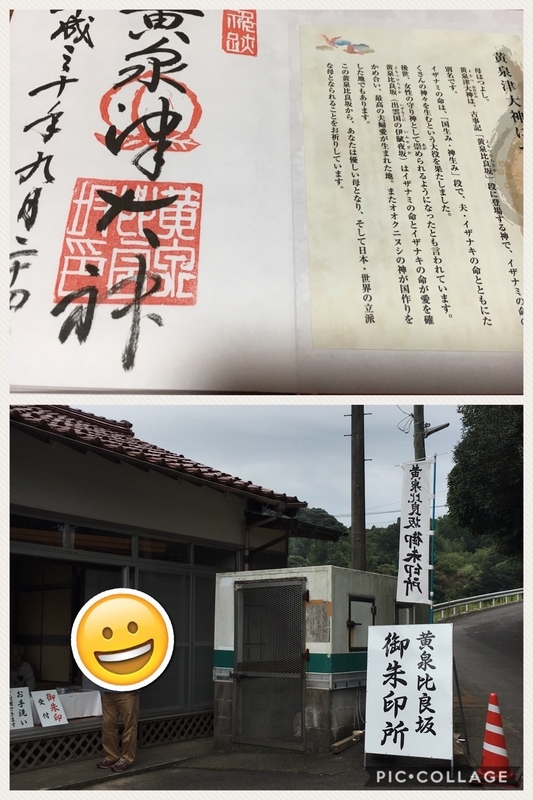 黄泉津大神
平成三十年九月二十四
黄泉津大神
母はつよし。
黄泉津大神は、古事記「黄泉比良坂」段に登場する神で、イザナミの命の
別名です。
イザナミの命は、「国生み・神生み」段で、夫・イザナキの命とともにた
くさんの神々を生むという大役を果たしました。
後世、女性の守り神として崇められるようになったとも言われています。
黄泉比良坂(出雲国の伊賦夜坂)はイザナミの命とイザナキの命が愛を確
かめ合い、最高の夫婦愛が生まれた地。またオオクニヌシの神が国作りを
した地でもあります。
この黄泉比良坂から、あなたは優しい母となり、そして日本・世界の立派
な母となられることをお祈りしています。
黄泉比良坂御朱印所
黄泉比良坂
御朱印所
御朱印
受付
お手洗い
PIC•COLLAGE